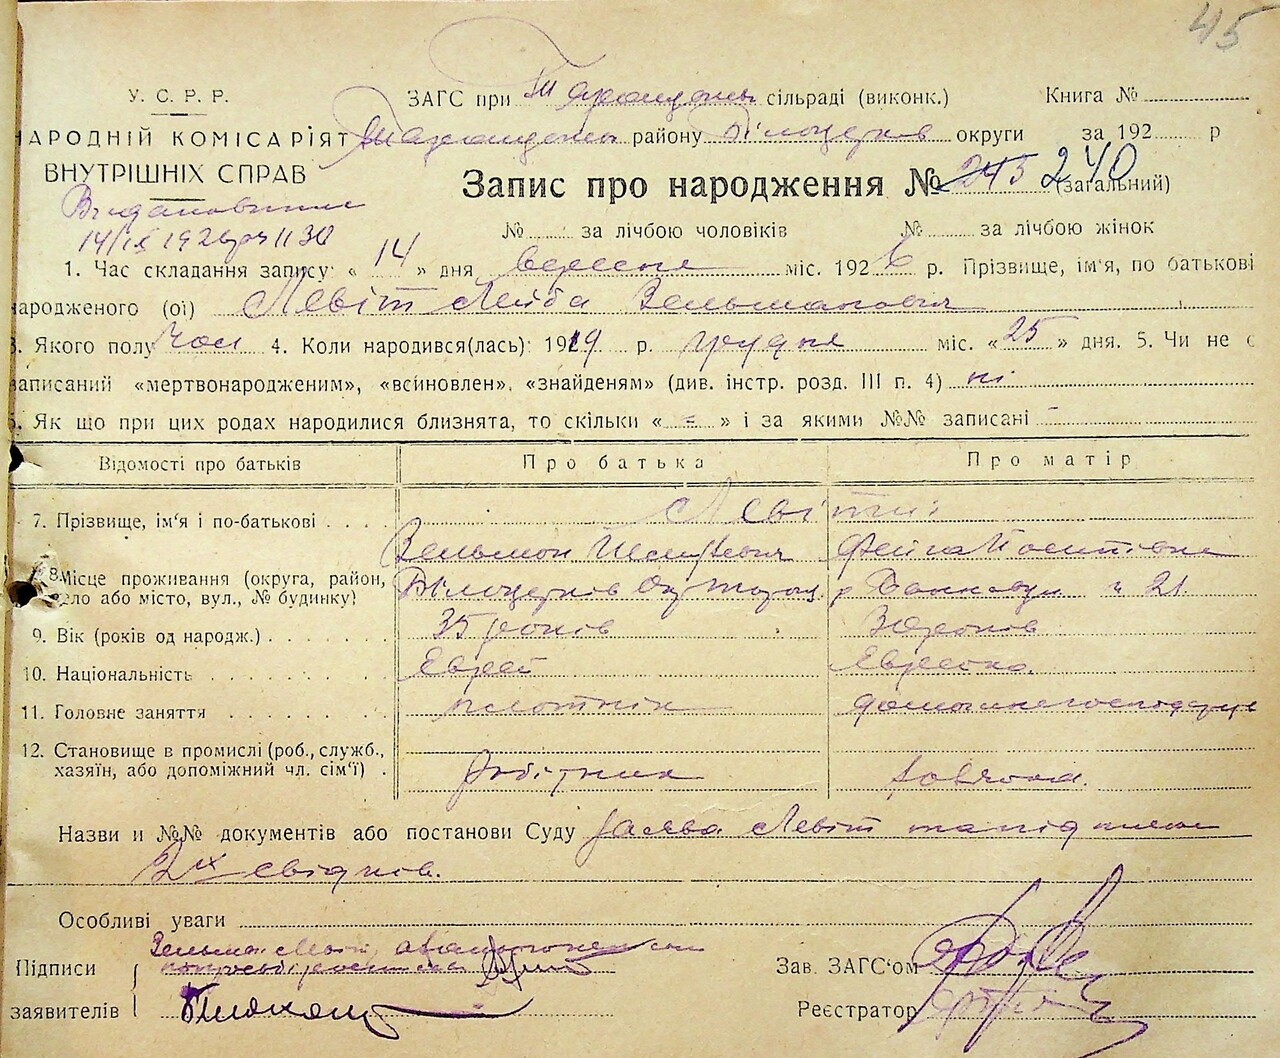 45
У. С. Р. Р. ЗАГС при сільраді (виконк.) Книга №
НАРОДНІЙ КОМІСАРІЯТ району Білоцерків округи за 192 р
ВНУТРІШНІХ СПРАВ Запис про народження № 245 240 (загальний)
14/IX 1926 р № за лічбою чоловіків № за лічбою жінок
1. Час складання запису: « 14 » дня вересня міс. 1926 р. Прізвище, ім'я, по батькові
народженого (ої) Левіт Лейба Зельманович
3. Якого полу Чол 4. Коли народився(лась): 1919 р. грудня міс. «25» дня. 5. Чи не є
записаний «мертвонародженим», «всиновлен», «знайденям» (див. інстр. розд. III п. 4) ні
6. Як що при цих родах народилися близнята, то скільки « = » і за якими №№ записані -
Відомості про батьків Про батька Про матір
7. Прізвище, ім'я і по-батькові Левіти:
Зельман Фейга
8. Місце проживання (округа, район, Білоцерків Окр 21.
село або місто, вул., № будинку)
9. Вік (років од народж.) 35 років років
10. Національність Еврей Еврейка
11. Головне заняття плотнік
12. Становище в промислі (роб., служб.,
хазяїн, або допоміжний чл. сім'ї) робітник
Назви и №№ документів або постанови Суду заява Левіт та підписи
2х свідків.
Особливі уваги
Підписи Зав. ЗАГС'ом
заявителів Реєстратор